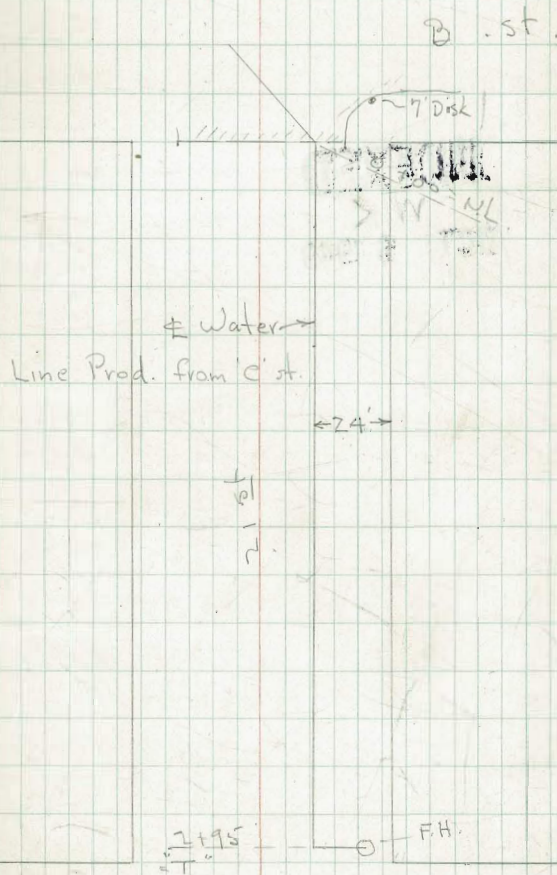 B. st.
7' Disk
NL
℄ Water
Line Prod. from 'C' st.
24'
2+95
"T"
F.H.